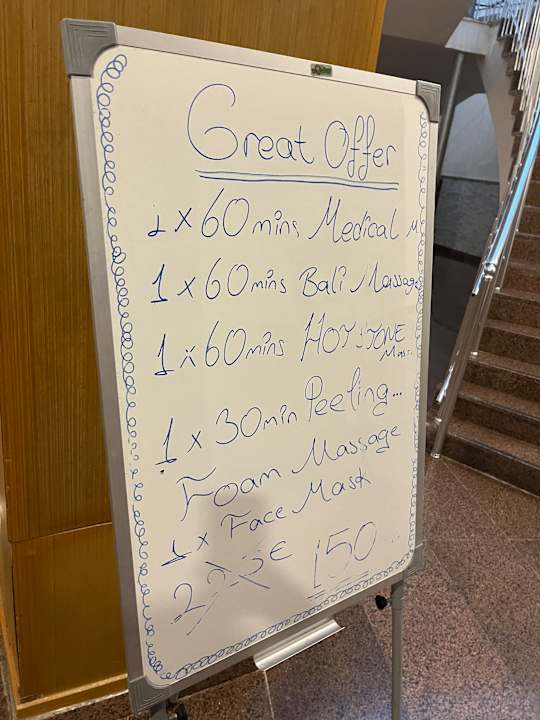 Great Offer
1 x 60 mins Medical M
1 x 60 mins Bali Massage
1 x 60 mins HOT STONE
Mass.
1 x 30 min Peeling...
Foam Massage
1 x Face Mask
225€ 150